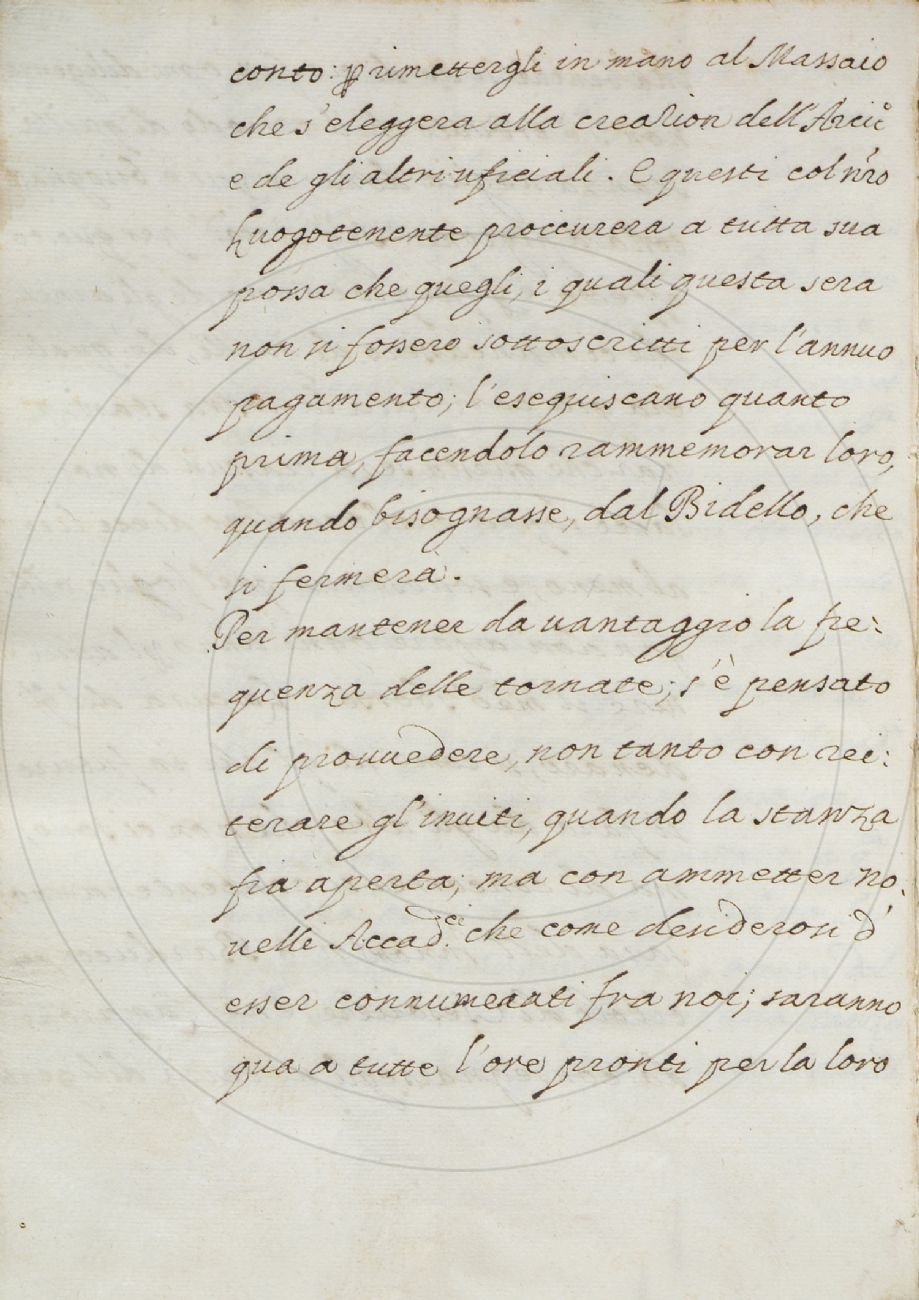 conto: p rimettergli in mano al Massaio
che s'eleggera alla creazion dell'Arcic.º
e de gli altri uficiali. E questi col nrõ
Luogotenente proccurera a tutta sua
possa che quegli, i quali questa sera
non si fossero sottoscritti per l'annuo
pagamento; l'eseguiscano quanto
prima, facendolo rammemorar loro,
quando bisognasse, dal Bidello, che
si fermera.
Per mantener da vantaggio la fre:
quenza delle tornate; s'è pensato
di provvedere, non tanto con rei:
terare gl'inviti, quando la stanza
fia aperta; ma con ammetter no:
velli Accad.ci che come desiderosi d'
esser connumerati fra noi; saranno
qua a tutte l'ore pronti per la loro